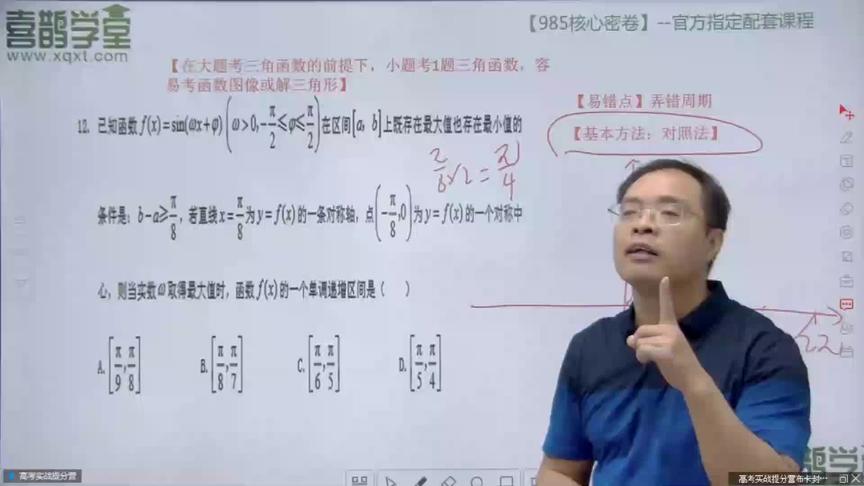 喜鹊学堂
www.xqxt.com
【985核心密卷】--官方指定配套课程
【在大题考三角函数的前提下，小题考1题三角函数，容
易考函数图像或解三角形】
【易错点】弄错周期
【基本方法：对照法】
12. 已知函数 f(x)=sin(ωx+φ)(ω>0,-π/2≤φ≤π/2)在区间[a, b]上既存在最大值也存在最小值的
条件是：b-a≥π/8，若直线x=π/8为y=f(x)的一条对称轴，点(-π/8,0)为y=f(x)的一个对称中
心，则当实数ω取得最大值时，函数f(x)的一个单调递增区间是（ ）
A.[π/9,π/8] B.[π/8,π/7] C.[π/6,π/5] D.[π/5,π/4]
喜鹊学
高考实战提分营